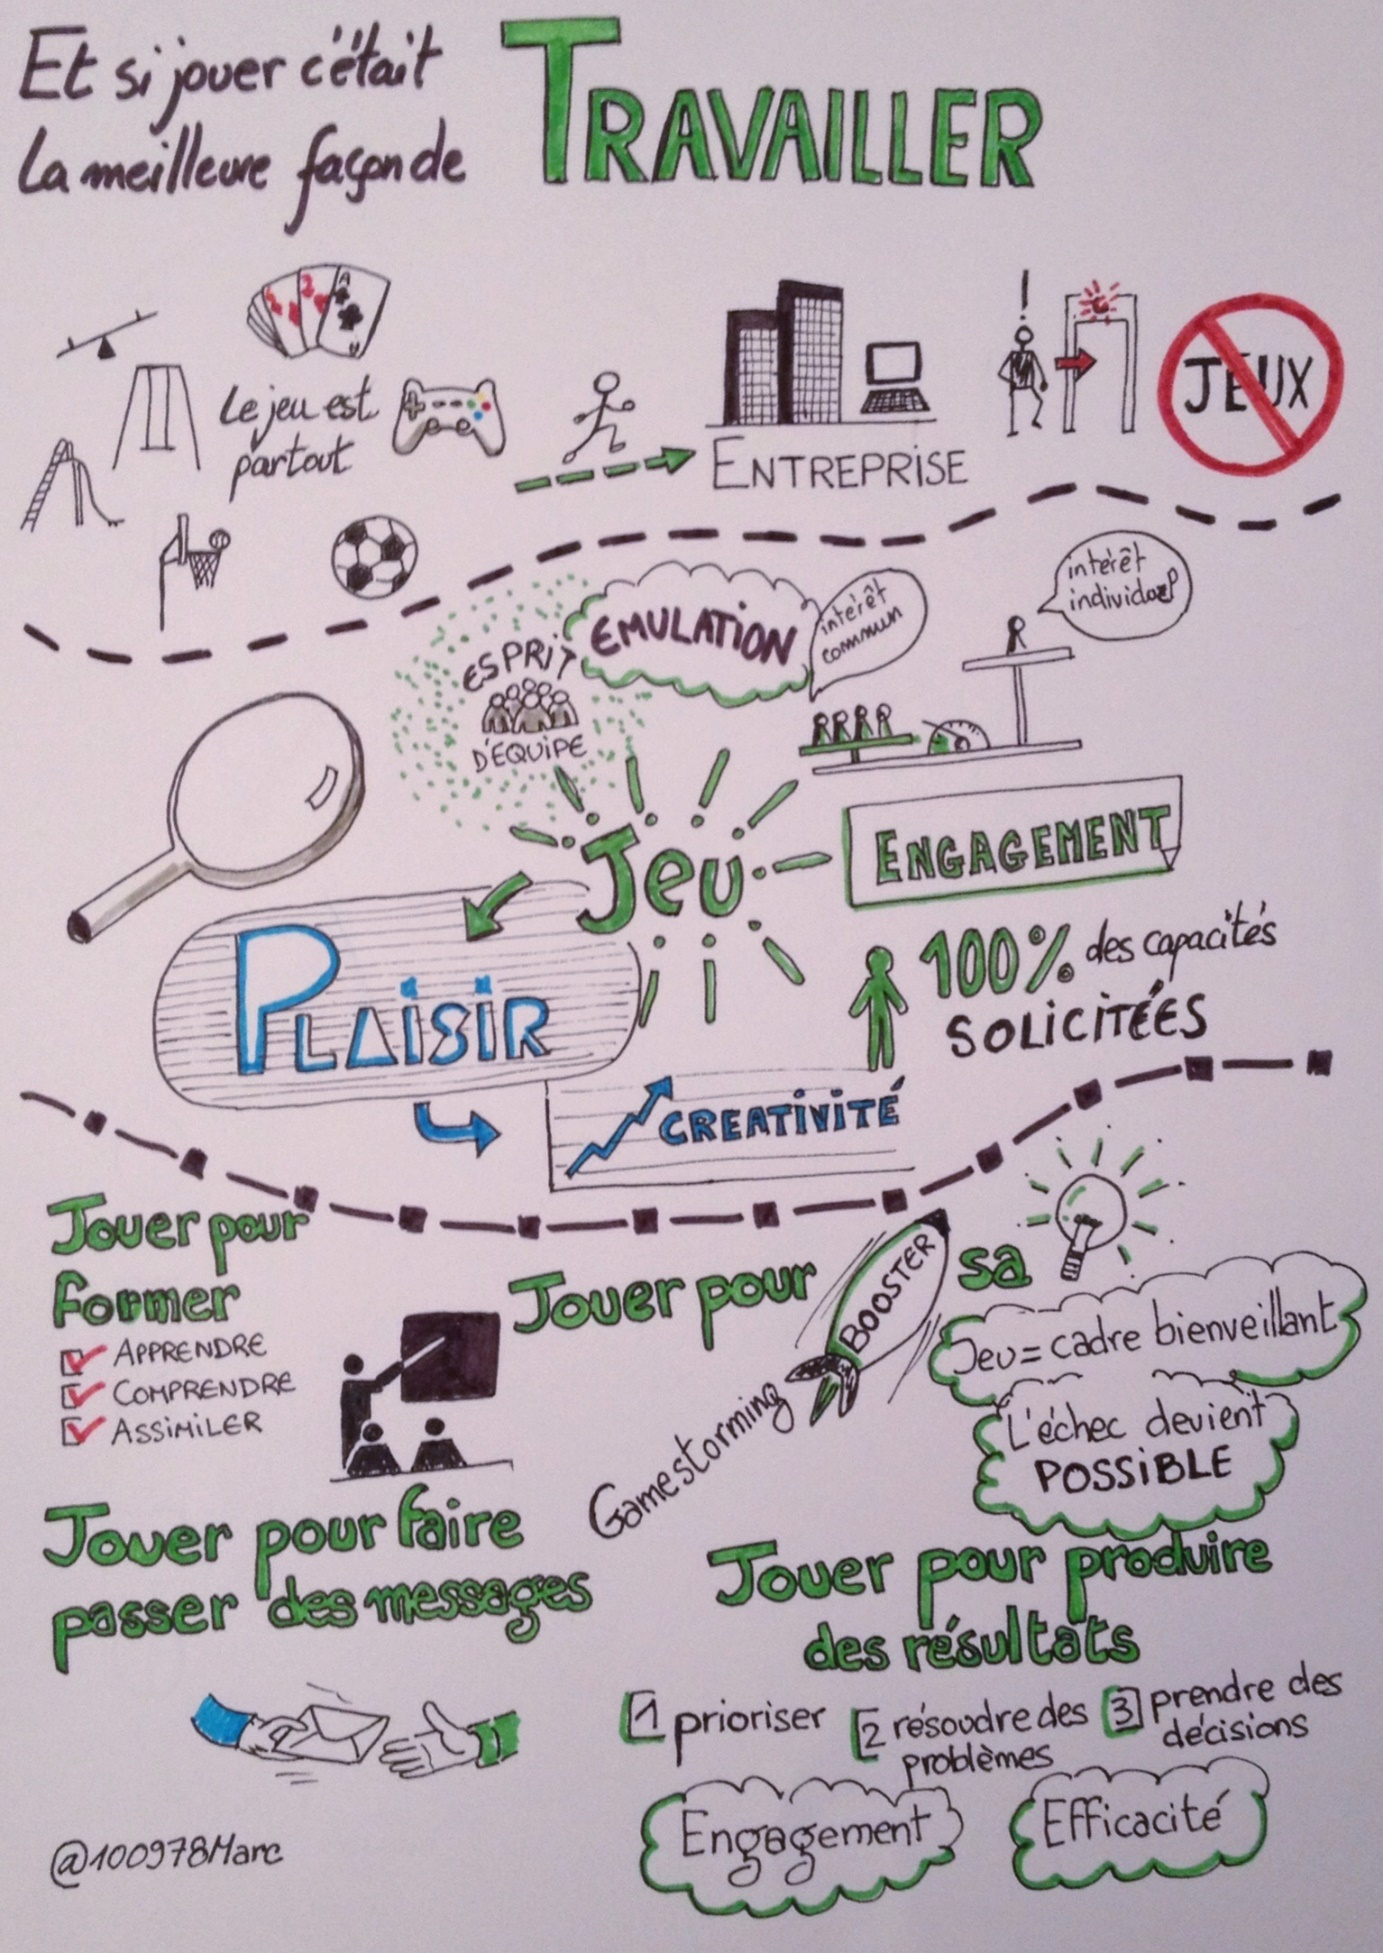 Et si jouer c'était
la meilleure façon de
TRAVAILLER
Le jeu est
partout
ENTREPRISE
JEUX
ESPRIT
D'EQUIPE
EMULATION
intérêt
commun
intérêt
individuel
Jeu
ENGAGEMENT
PLAISIR
100% des capacités
SOLICITÉES
CREATIVITÉ
Jouer pour
former
APPRENDRE
COMPRENDRE
ASSIMILER
Jouer pour BOOSTER sa
Gamestorming
Jeu = cadre bienveillant
L'échec devient
POSSIBLE
Jouer pour faire
passer des messages
Jouer pour produire
des résultats
1 prioriser
2 résoudre des
problèmes
3 prendre des
décisions
Engagement
Efficacité
@100978Marc